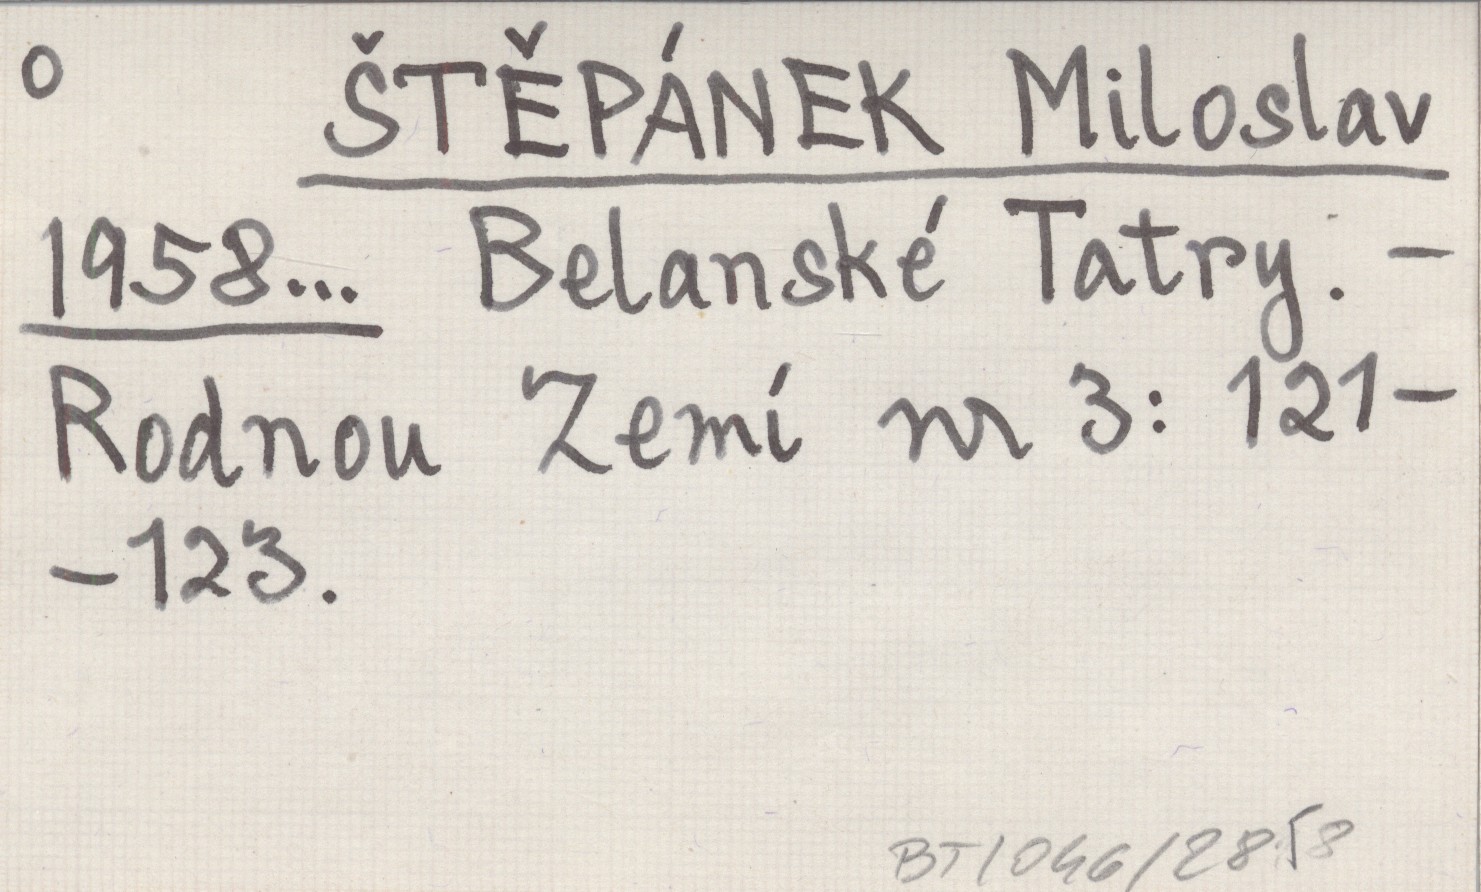 o ŠTĚPÁNEK Miloslav
1958... Belanské Tatry. –
Rodnou Zemí nr 3: 121–
–123.
BT/046/2858